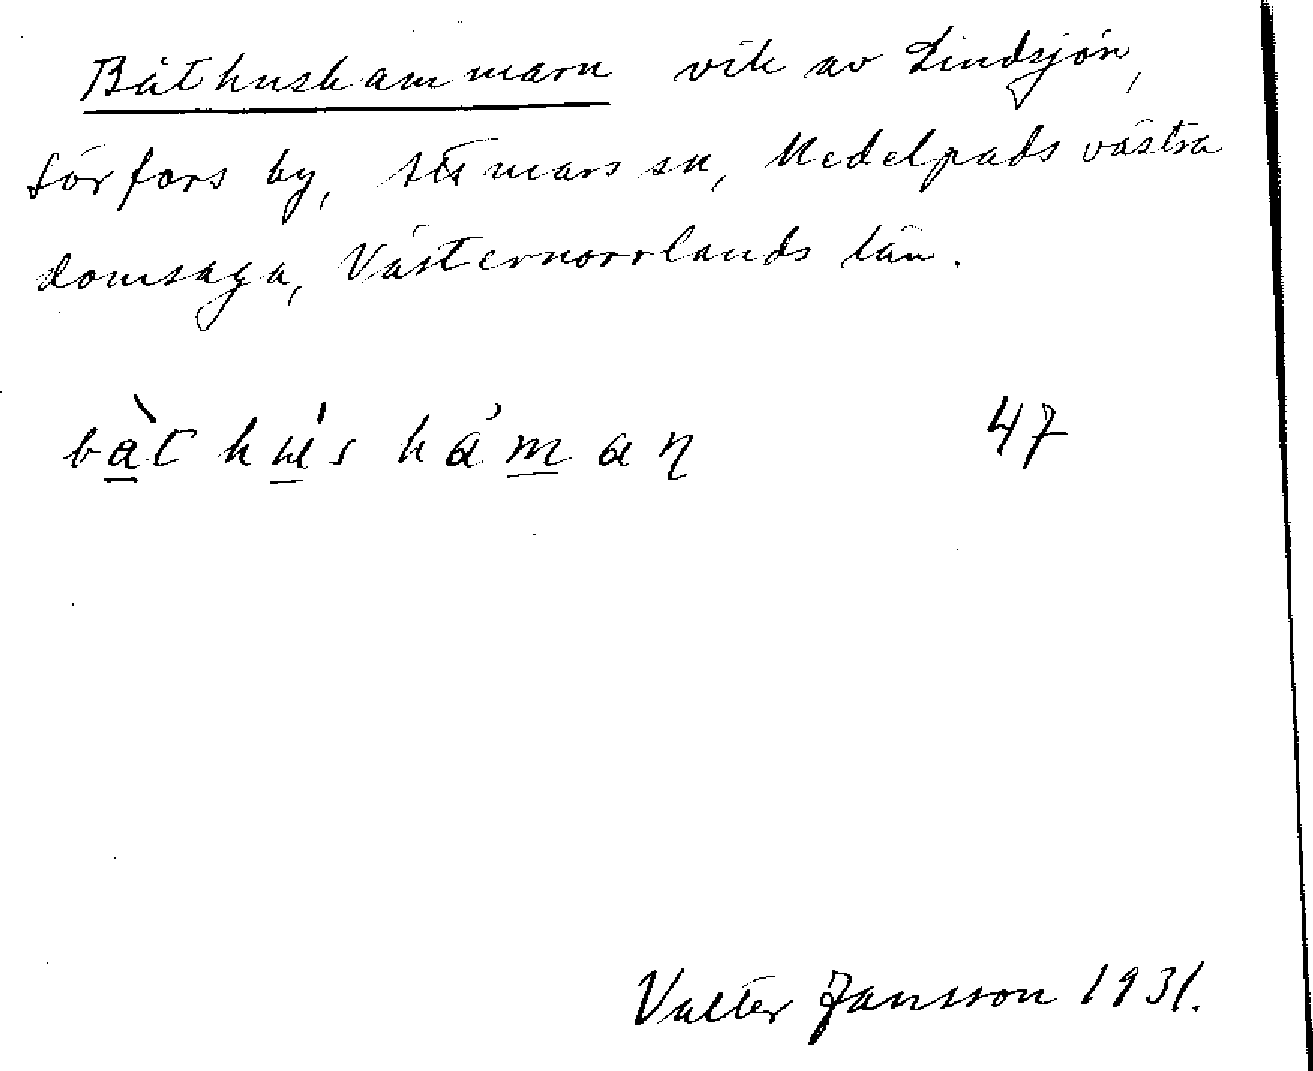 Båthushammarn vik av Lindsjön,
Sörfors by, Attmars sn, Medelpads västra
domsaga, Västernorrlands län.
bàt hús håmaɳ 47
Valter Jansson 1931.